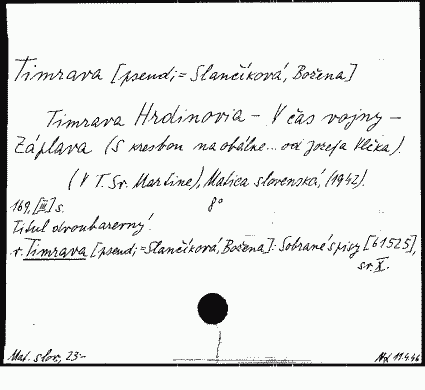 Timrava [pseud; = Slančíková, Božena]
Timrava Hrdinovia - V čas vojny -
Záplava (S kresbou na obálke... od Jozefa Vlčka).
(V T. Sv. Martine), Matica slovenská, (1942).
169, [III] s. 8°
Titul dvoubarevný.
v. Timrava [pseud; = Slančíková, Božena]: Sobrané spisy [61525],
sv. X.
Mat. slov., 23.- 11.4.46